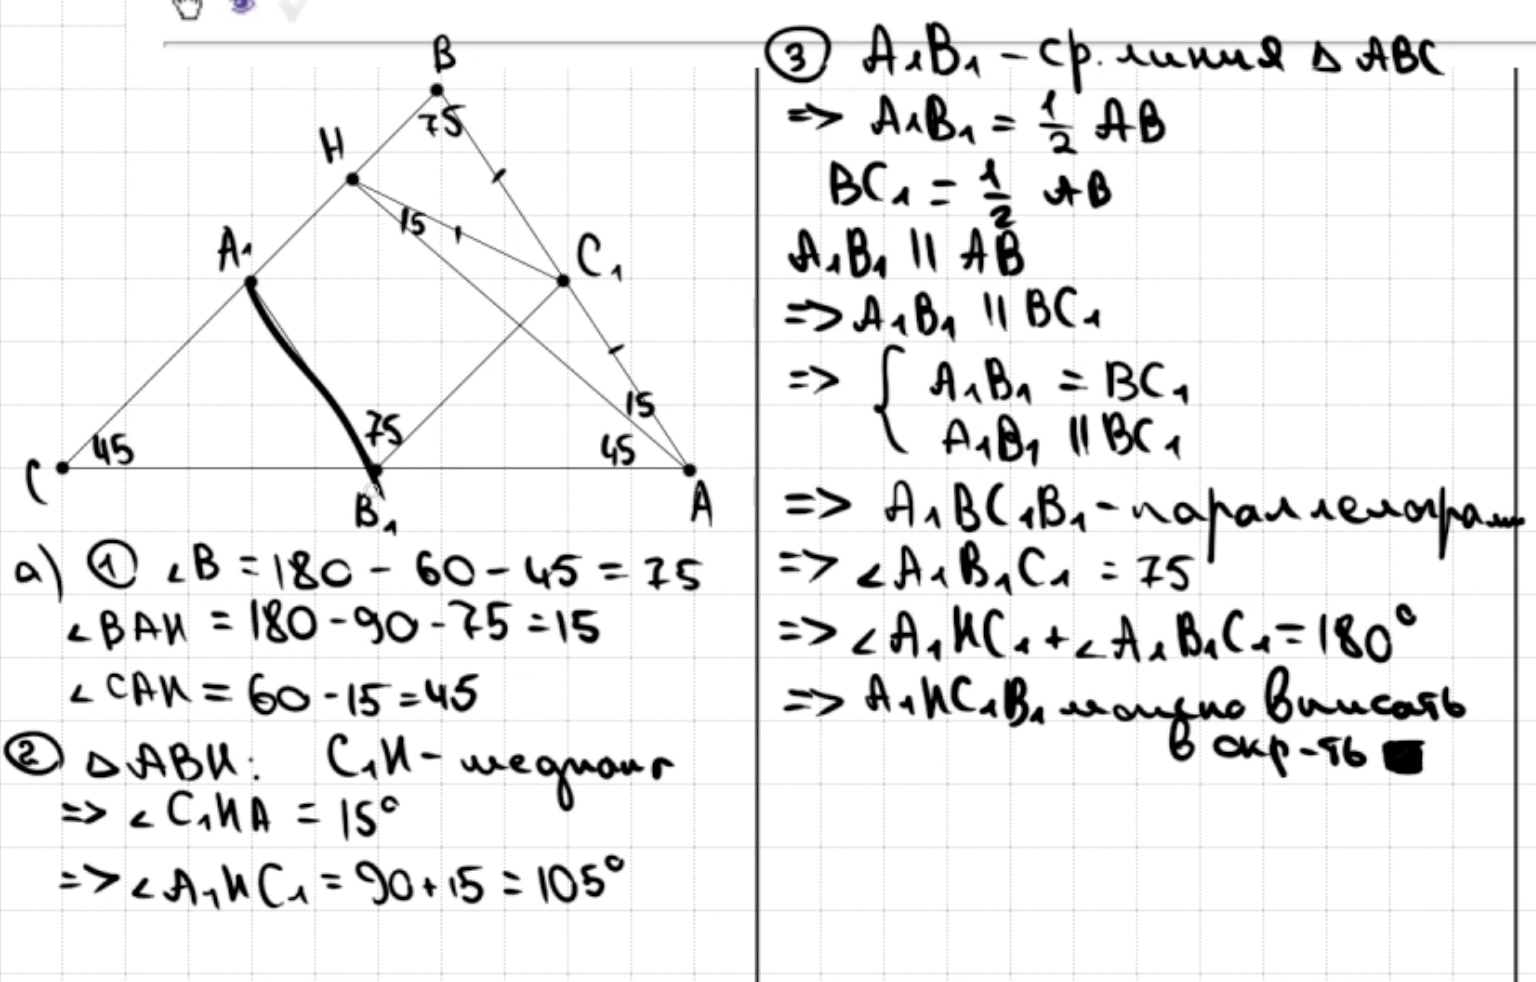 B
75
H
15
A₁
C₁
15
45
75
45
C
B₁
A
а) ① ∠B = 180 - 60 - 45 = 75
∠BAH = 180 - 90 - 75 = 15
∠CAH = 60 - 15 = 45
② △ABH: C₁H - медиана
=> ∠C₁HA = 15°
=> ∠A₁HC₁ = 90 + 15 = 105°
③ A₁B₁ - ср. линия △ABC
=> A₁B₁ = 1/2 AB
BC₁ = 1/2 AB
A₁B₁ || AB
=> A₁B₁ || BC₁
=> { A₁B₁ = BC₁
A₁B₁ || BC₁
=> A₁BC₁B₁ - параллелограмм
=> ∠A₁B₁C₁ = 75
=> ∠A₁HC₁ + ∠A₁B₁C₁ = 180°
=> A₁HC₁B₁ можно вписать
в окр-ть